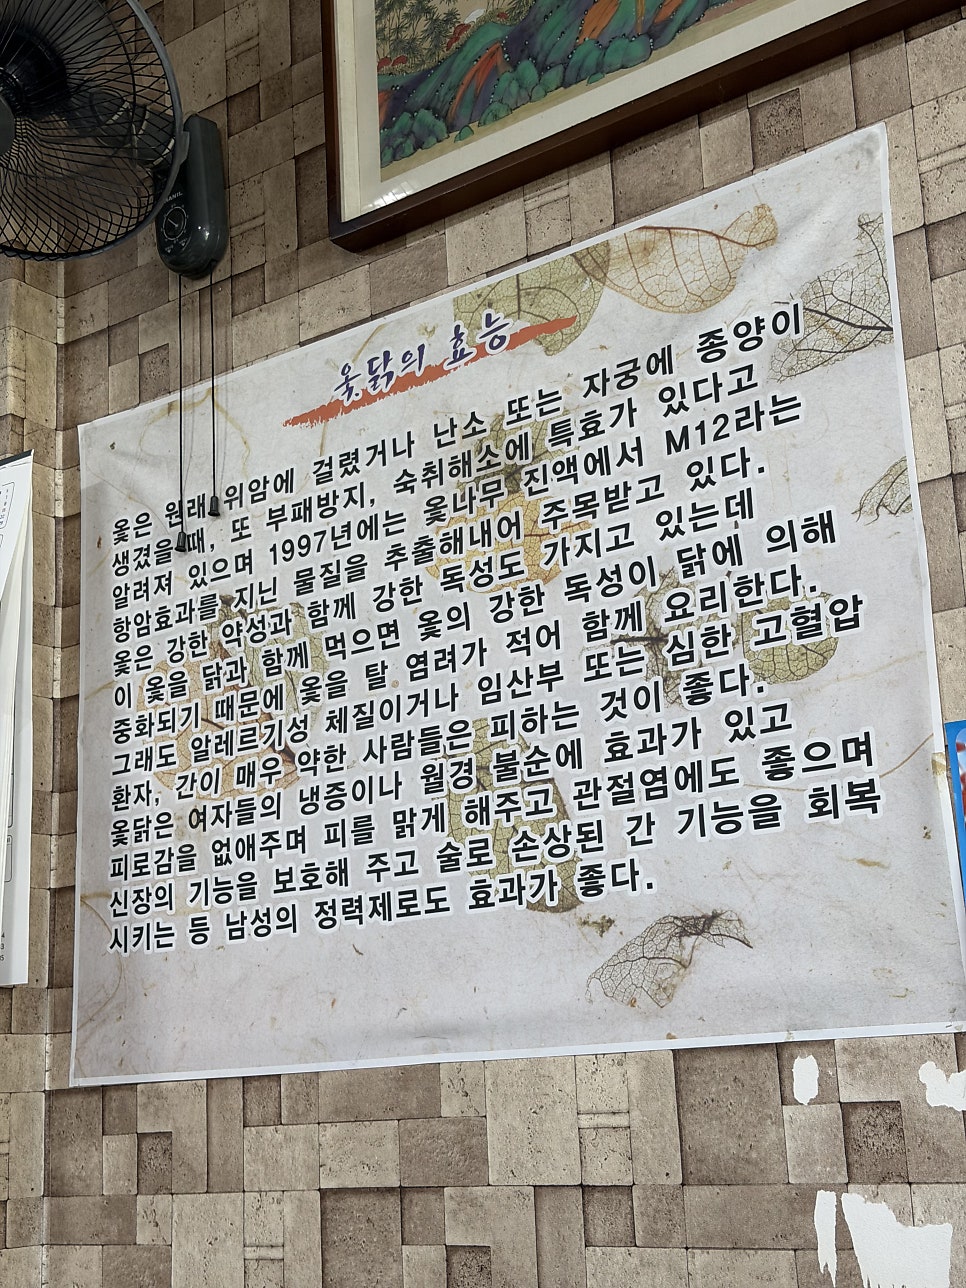 옻닭의 효능
옻은 원래 위암에 걸렸거나 난소 또는 자궁에 종양이
생겼을 때, 또 부패방지, 숙취해소에 특효가 있다고
알려져 있으며 1997년에는 옻나무 진액에서 M12라는
항암효과를 지닌 물질을 추출해내어 주목받고 있다.
옻은 강한 약성과 함께 강한 독성도 가지고 있는데
이 옻을 닭과 함께 먹으면 옻의 강한 독성이 닭에 의해
중화되기 때문에 옻을 탈 염려가 적어 함께 요리한다.
그래도 알레르기성 체질이거나 임산부 또는 심한 고혈압
환자, 간이 매우 약한 사람들은 피하는 것이 좋다.
옻닭은 여자들의 냉증이나 월경 불순에 효과가 있고
피로감을 없애주며 피를 맑게 해주고 관절염에도 좋으며
신장의 기능을 보호해 주고 술로 손상된 간 기능을 회복
시키는 등 남성의 정력제로도 효과가 좋다.